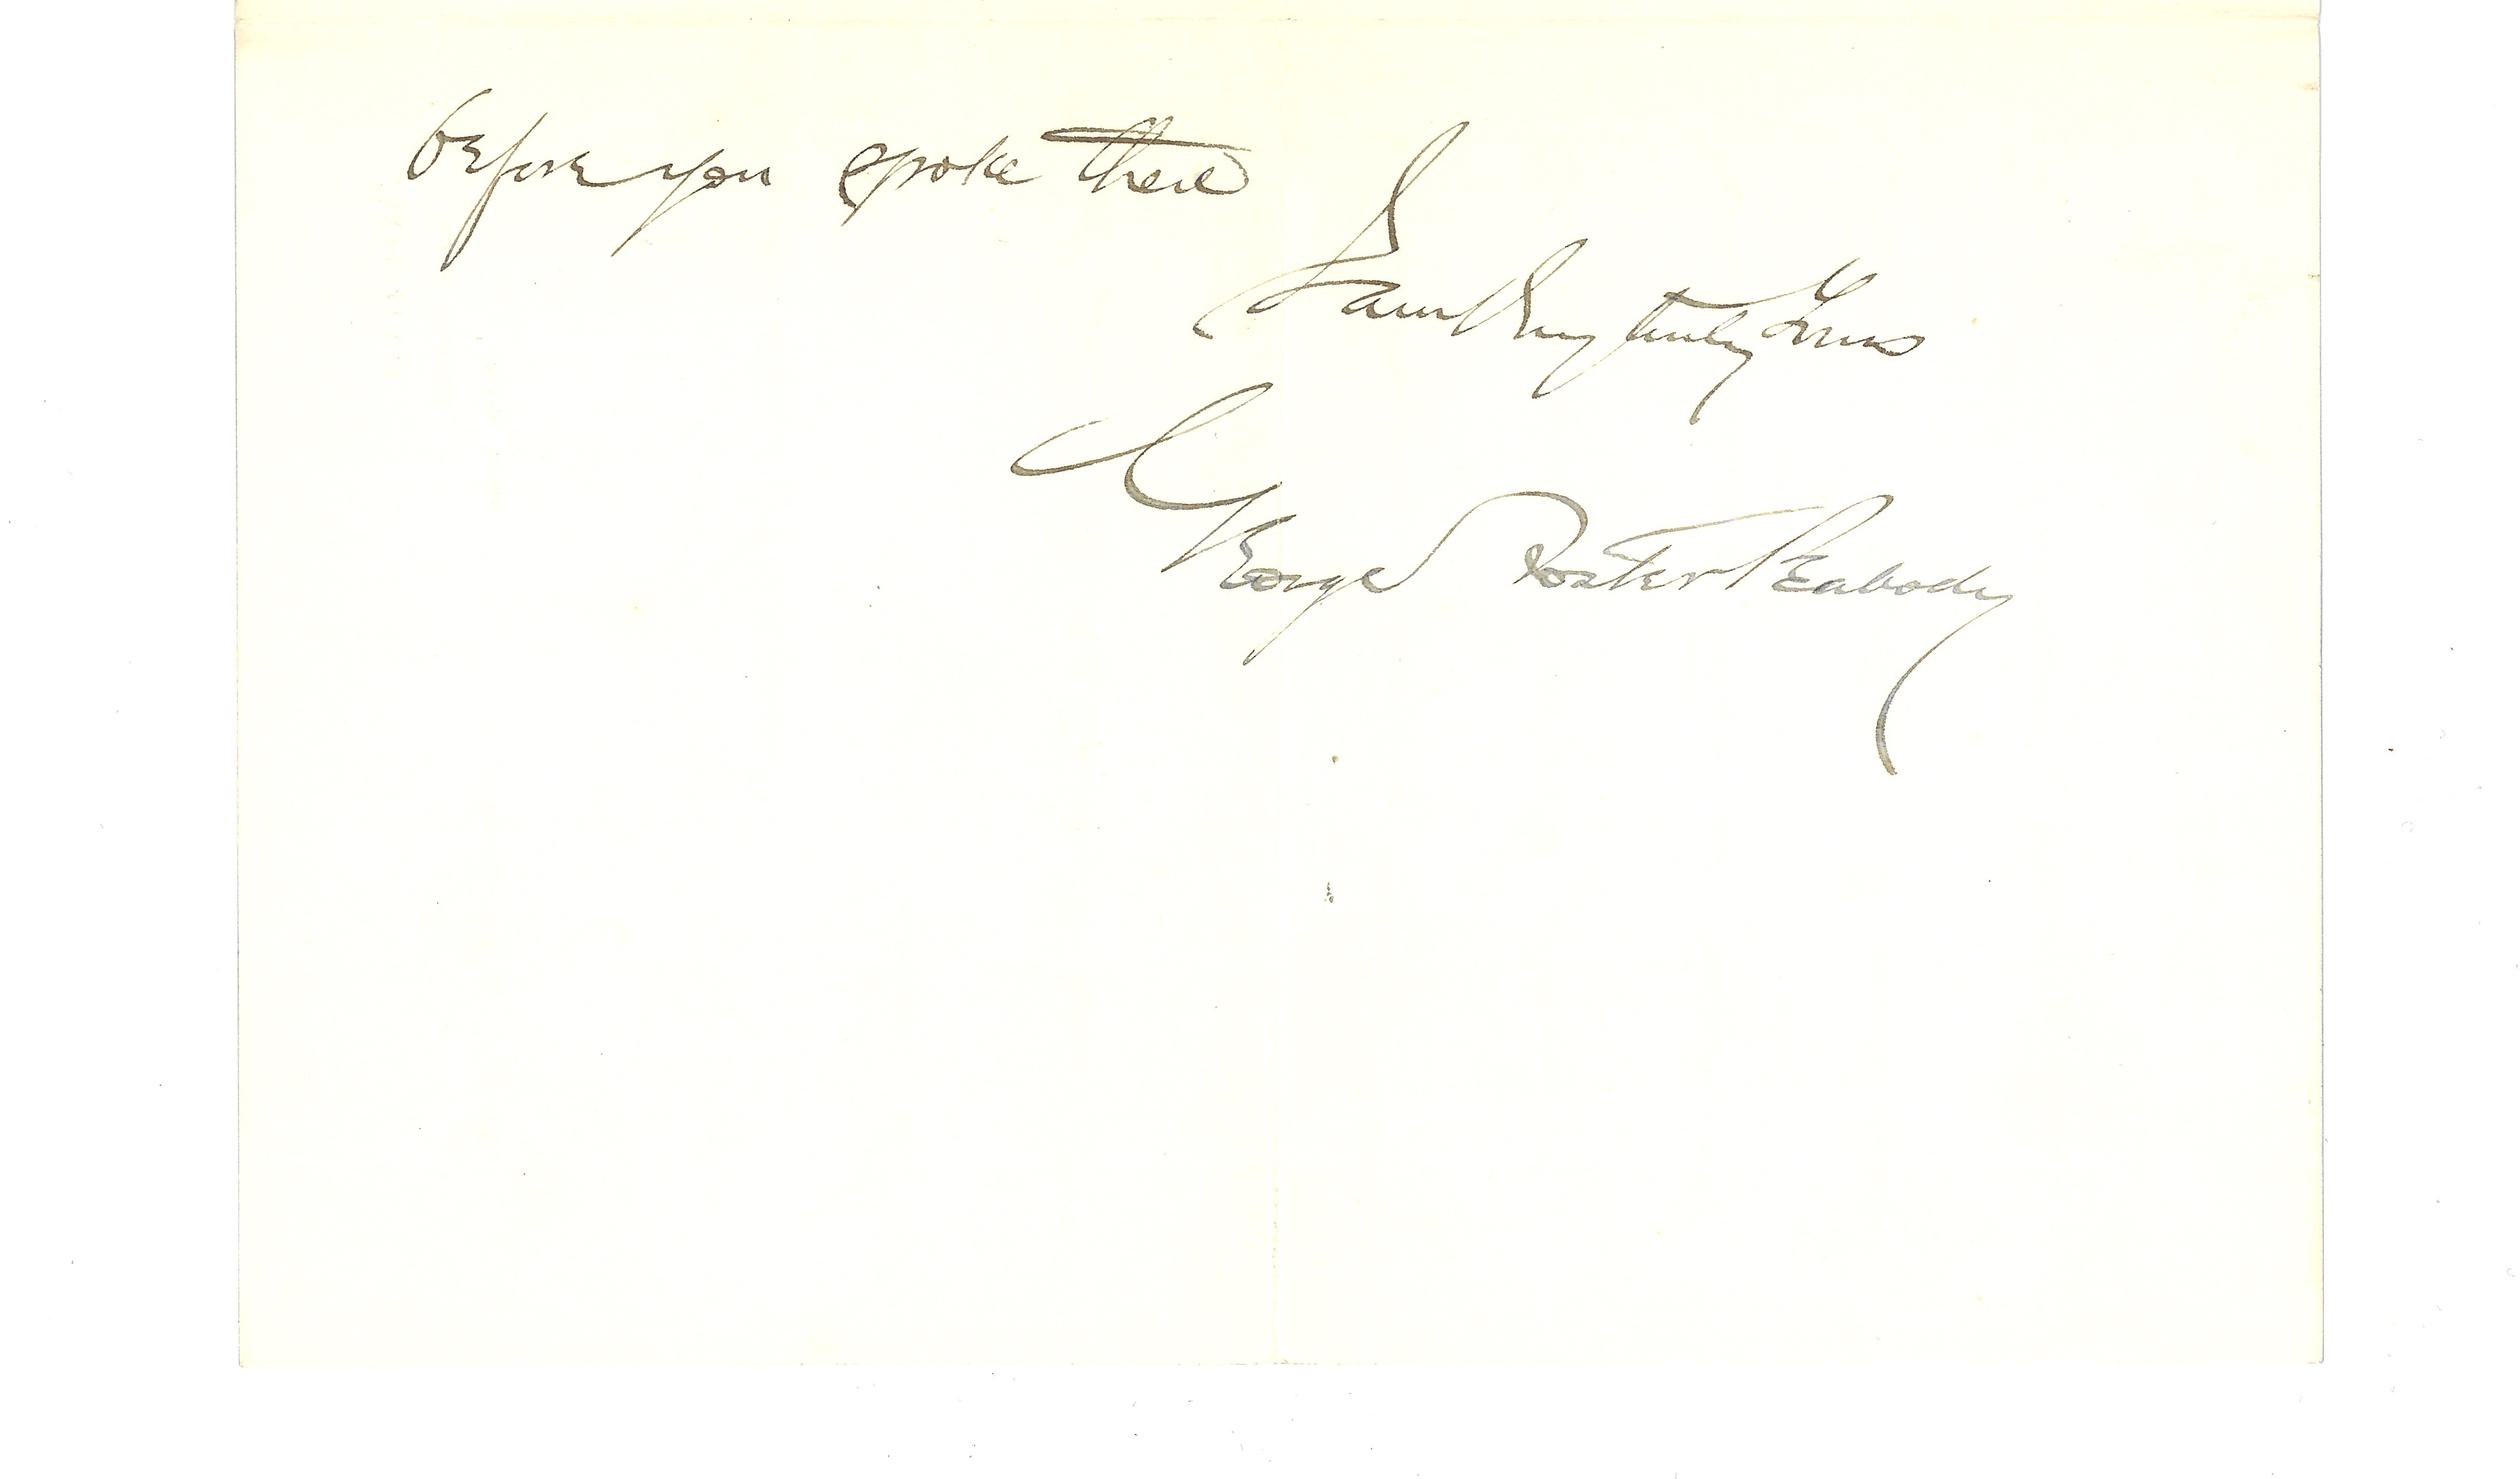 before you spoke there
I am Very truly Yours
George Foster Peabody